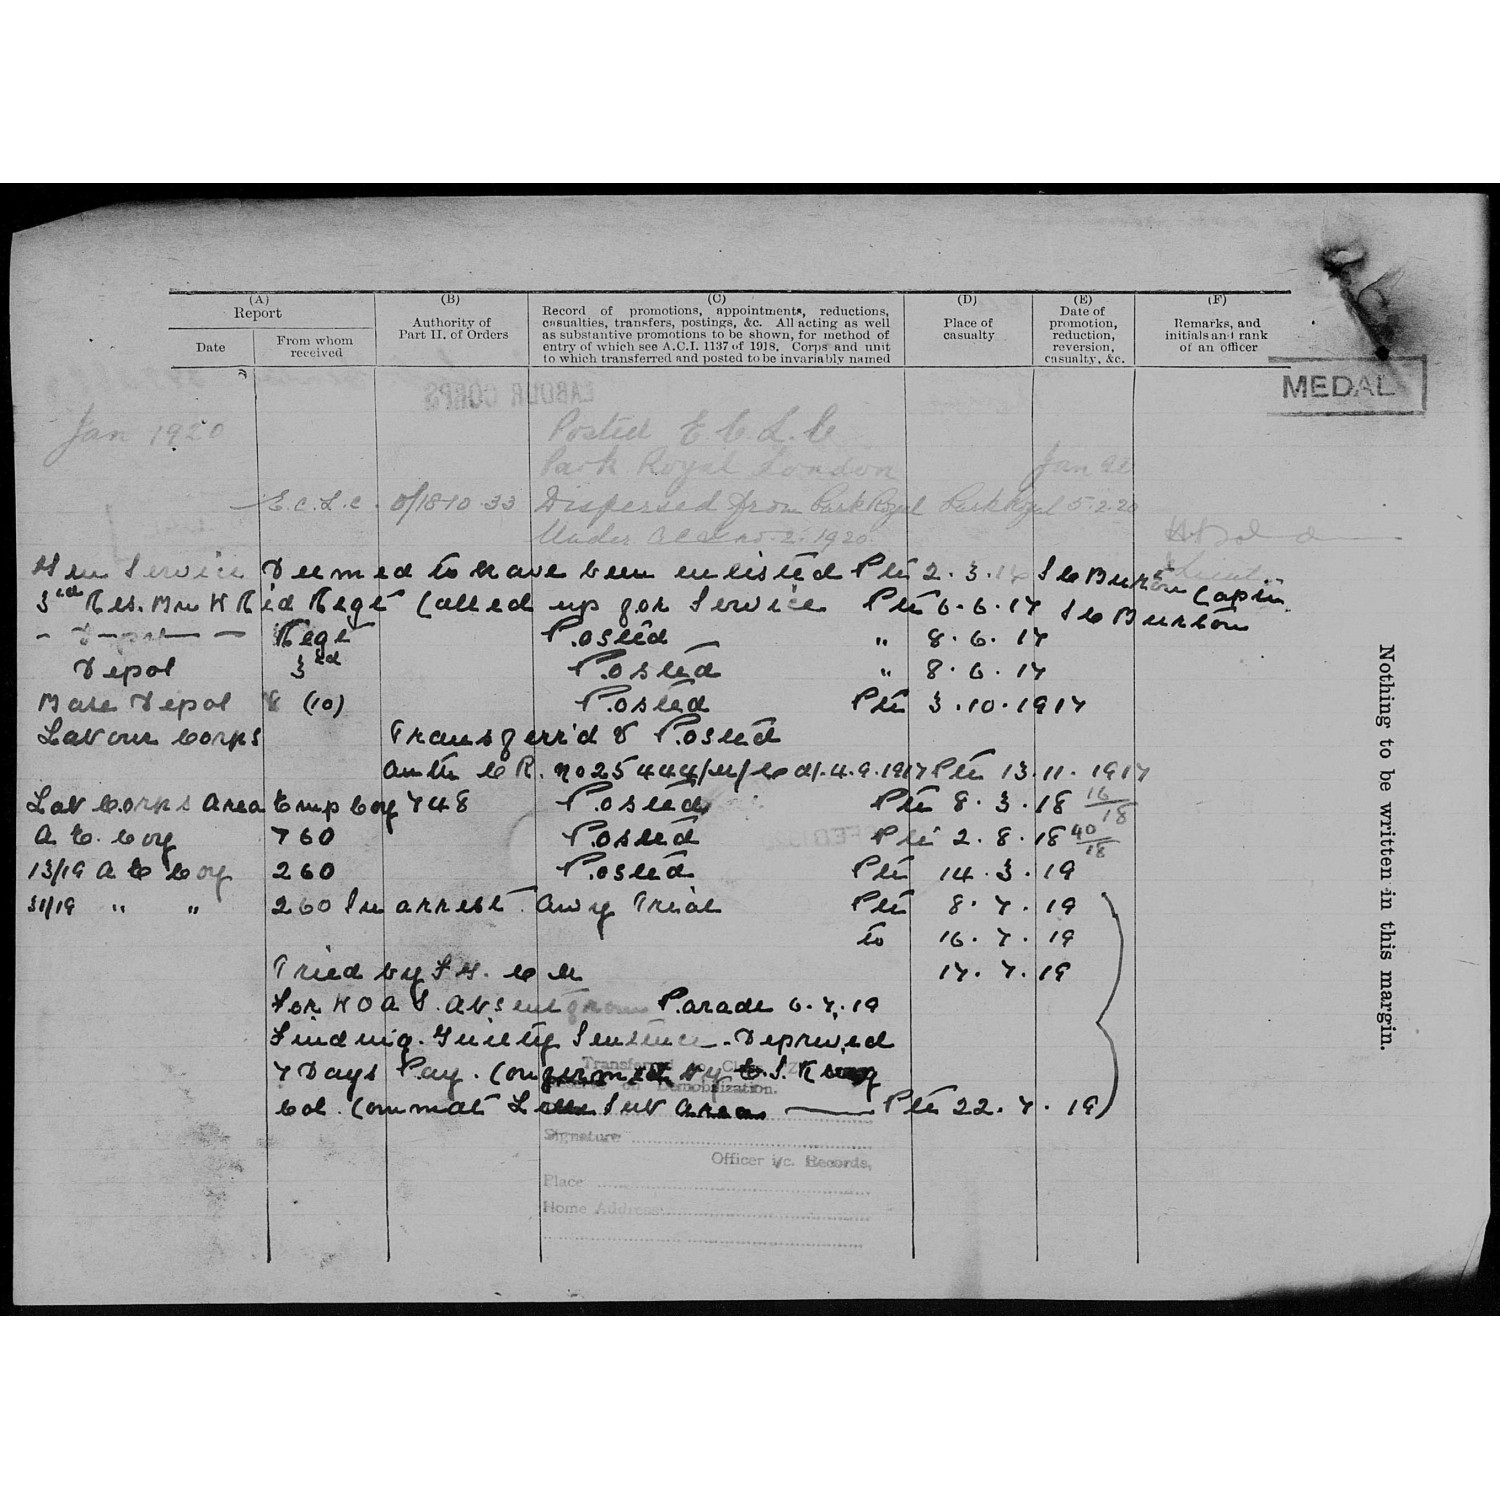 (A) (B) (C) (D) (E) (F)
Report
Date
From whom received
Authority of Part II. of Orders
Record of promotions, appointments, reductions,
casualties, transfers, postings, &c. All acting as well
as substantive promotions to be shown, for method of
entry of which see A.C.I. 1137 of 1918. Corps and unit
to which transferred and posted to be invariably named
Place of casualty
Date of promotion, reduction, reversion, casualty, &c.
Remarks, and initials and rank of an officer
MEDAL
LABOUR CORPS
Jan 1920 Posted E C L C
Park Royal London Jan 20
E.C.L.C. O/1810.33 Dispersed from Park Royal Park Royal 5.2.20
Under ACI no. 2. 1920
Gen Service Deemed to have been enlisted Pte 2.3.17 Burton Capn
3rd Res. Bn W Rid Regt Called up for Service Pte 6.6.17 Burton
- Depot - Regt Posted " 8.6.17
Depot 3rd Posted " 8.6.17
Base Depot (10) Posted Pte 3.10.1917
Labour Corps Transferr'd & Posted
Auth C R. No 25444/M/ d/. 4.9.1917 Pte 13.11.1917
Lab Corps Area Emp Coy 748 Posted Pte 8.3.18 16/18
A E Coy 760 Posted Pte 2.8.18 40/18
13/19 A E Coy 260 Posted Pte 14.3.19
31/19 " " 260 In arrest Awg Trial Pte 8.7.19
to 16.7.19
Tried by F G. C M 17.7.19
For W O A S. Absent from Parade 6.7.19
Finding. Guilty Sentence. Deprived
7 Days Pay. Confirmed by
Col. Commdt Sub Area — Pte 22.7.19
Demobilization.
Signature
Officer i/c. Records,
Place
Home Address
Nothing to be written in this margin.